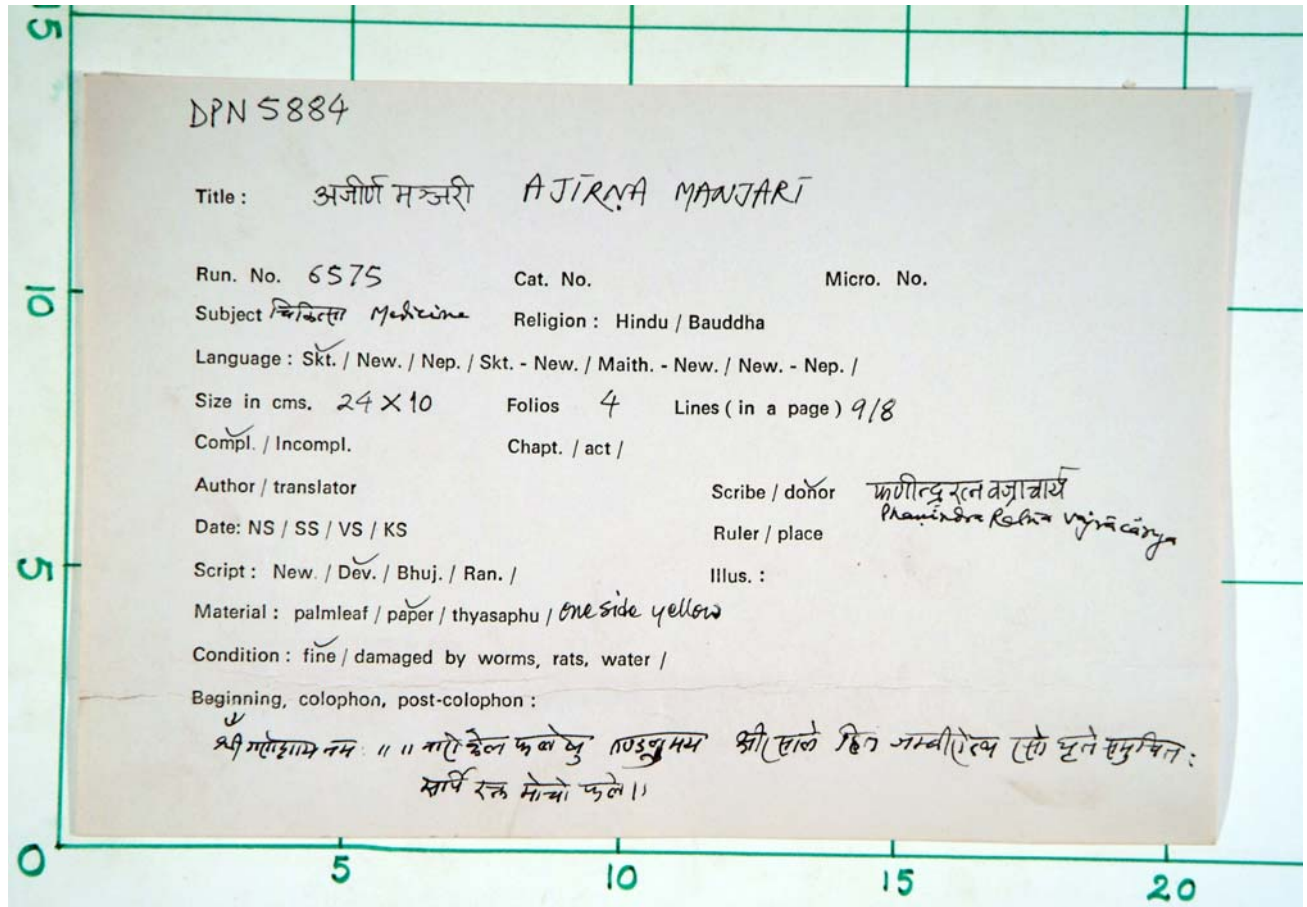 15
DPN 5884
Title : अजीर्ण मञ्जरी AJĪRṆA MANJARĪ
10
Run. No. 6575 Cat. No. Micro. No.
Subject चिकित्सा Medicine Religion : Hindu / Bauddha
Language : Skt. / New. / Nep. / Skt. - New. / Maith. - New. / New. - Nep. /
Size in cms. 24 × 10 Folios 4 Lines ( in a page ) 9/8
Compl. / Incompl. Chapt. / act /
Author / translator Scribe / donor फणीन्द्र रत्न वज्राचार्य
Phanindra Ratna Vajrācārya
Date: NS / SS / VS / KS Ruler / place
5
Script : New. / Dev. / Bhuj. / Ran. / Illus. :
Material : palmleaf / paper / thyasaphu / one side yellow
Condition : fine / damaged by worms, rats, water /
Beginning, colophon, post-colophon :
श्री गणेशाय नम ॥ ॥ नारी केल फलेषु रसो घृते समुचित :
सर्पि मोचो फले ॥
0
5 10 15 20